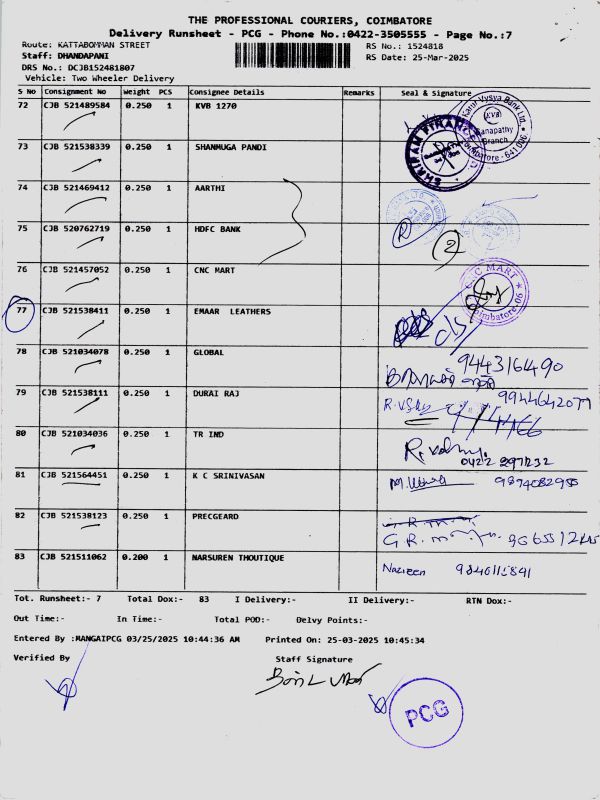 THE PROFESSIONAL COURIERS, COIMBATORE
Delivery Runsheet - PCG - Phone No.:0422-3505555 - Page No.:7
Route: KATTABOMMAN STREET RS No.: 1524818
Staff: DHANDAPANI RS Date: 25-Mar-2025
DRS No.: DCJB152481807
Vehicle: Two Wheeler Delivery
S No Consignment No Weight PCS Consignee Details Remarks Seal & Signature
72 CJB 521489584 0.250 1 KVB 1270
Karur Vysya Bank Ltd. KVB Ganapathy Branch Coimbatore - 641 006
73 CJB 521538339 0.250 1 SHANMUGA PANDI
SHRIRAM FINANCE
74 CJB 521469412 0.250 1 AARTHI
75 CJB 520762719 0.250 1 HDFC BANK
2
76 CJB 521457052 0.250 1 CNC MART
CNC MART Coimbatore-06
77 CJB 521538411 0.250 1 EMAAR LEATHERS
78 CJB 521034078 0.250 1 GLOBAL
9443164490
79 CJB 521538111 0.250 1 DURAI RAJ
9944642077
80 CJB 521034036 0.250 1 TR IND
0422 2971232
81 CJB 521564451 0.250 1 K C SRINIVASAN
82 CJB 521538123 0.250 1 PRECGEARD
83 CJB 521511062 0.200 1 NARSUREN THOUTIQUE
Nazreen
Tot. Runsheet:- 7 Total Dox:- 83 I Delivery:- II Delivery:- RTN Dox:-
Out Time:- In Time:- Total POD:- Delvy Points:-
Entered By :MANGAIPCG 03/25/2025 10:44:36 AM Printed On: 25-03-2025 10:45:34
Verified By Staff Signature
PCG